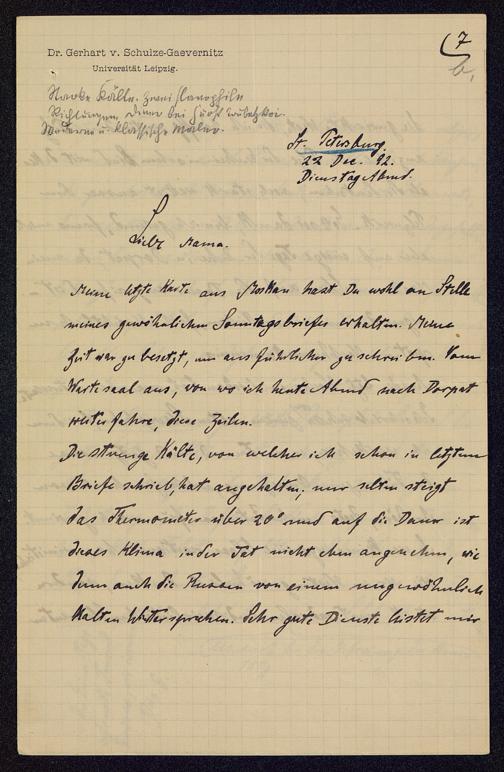 7
b.
Dr. Gerhart v. Schulze-Gaevernitz
Universität Leipzig.
Starke Kälte. Zwei slavophile
Richtungen, Diner bei Fürst Trubetzkoi.
Moderne u. klassische Maler.
St. Petersburg.
22 Dec. 92.
Dienstag Abend.
Liebe Mama.
Meine letzte Karte aus Moskau hast Du wohl an Stelle
meines gewöhnlichen Sonntagsbriefes erhalten. Meine
Zeit war zu besetzt, um ausführlicher zu schreiben. Vom
Wartesaal aus, von wo ich heute Abend nach Dorpat
weiterfahre, diese Zeilen.
Die strenge Kälte, von welcher ich schon im letzten
Briefe schrieb, hat angehalten; nur selten steigt
das Thermometer über 20° und auf die Dauer ist
dieses Klima in der Tat nicht eben angenehm, wie
denn auch die Russen von einem ungewöhnlich
kalten Winter sprechen. Sehr gute Dienste leistet mir